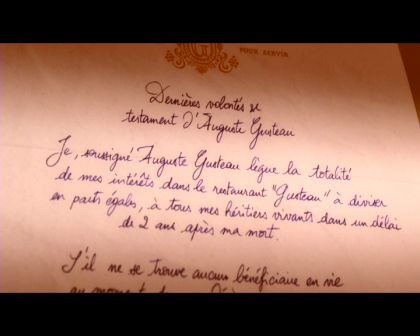 POUR SERVIR
Dernières volontés se
testament d'Auguste Gusteau
Je, soussigné Auguste Gusteau lègue la totalité
de mes intérêts dans le restaurant "Gusteau" à diviser
en parts égales, à tous mes héritiers vivants dans un délai
de 2 ans après ma mort.
S'il ne se trouve aucun bénéficiaire en vie
au moment